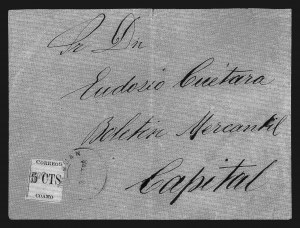 Sr Dn
Eudosio Cuétara
Boletin Mercantil
Capital
CORREOS
5 CTS
COAMO